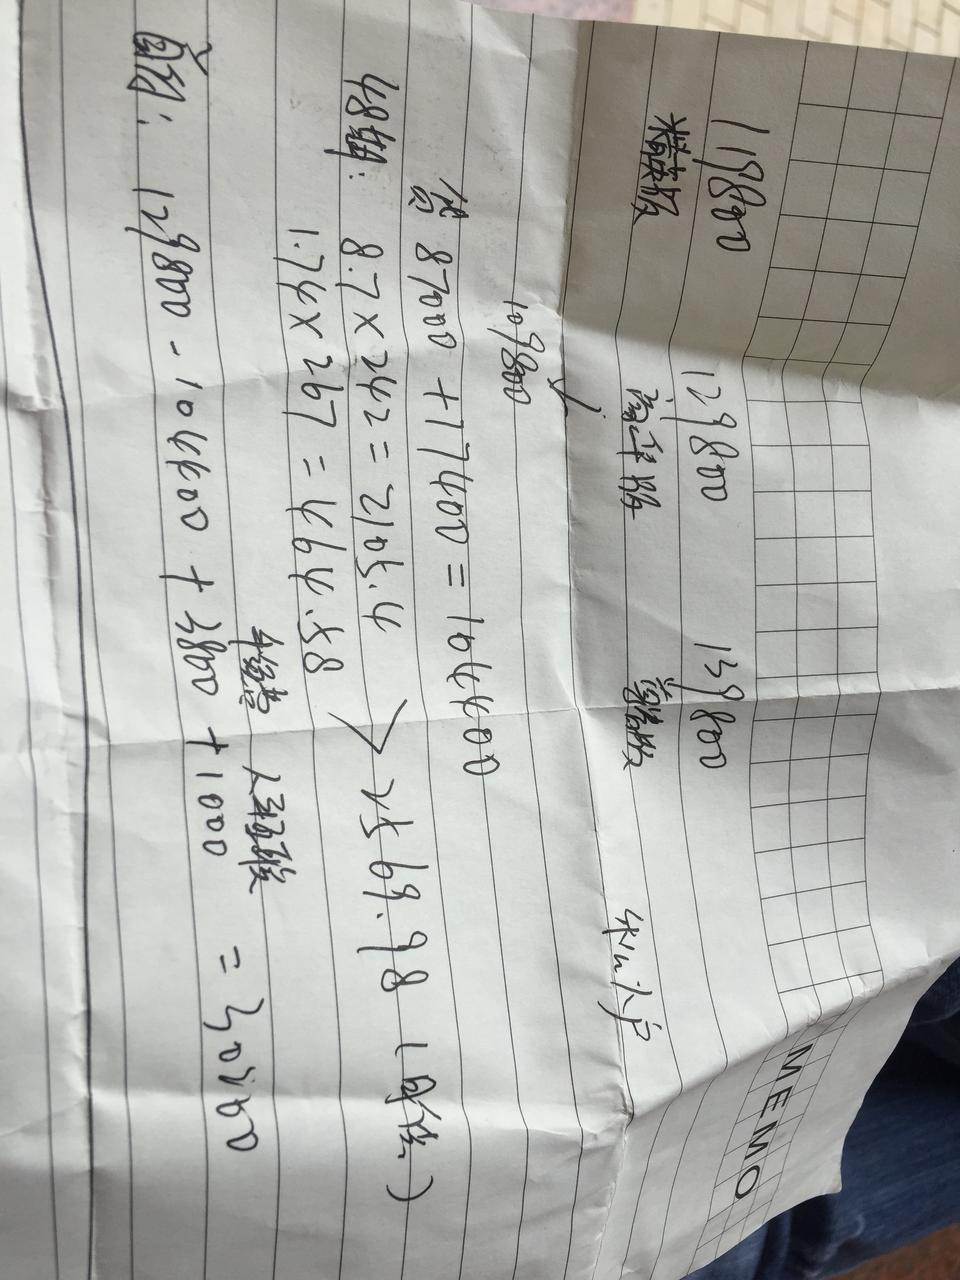 MEMO
119800 129800 139800
精英版 豪华版 尊贵版
109800
贷 87000 + 17400 = 104400
48期: 8.7 × 242 = 2105.4
1.74 × 267 = 464.58
2569.98 (月供)
车险 
首付: 129800 - 104400 + 3800 + 1000 = 30200